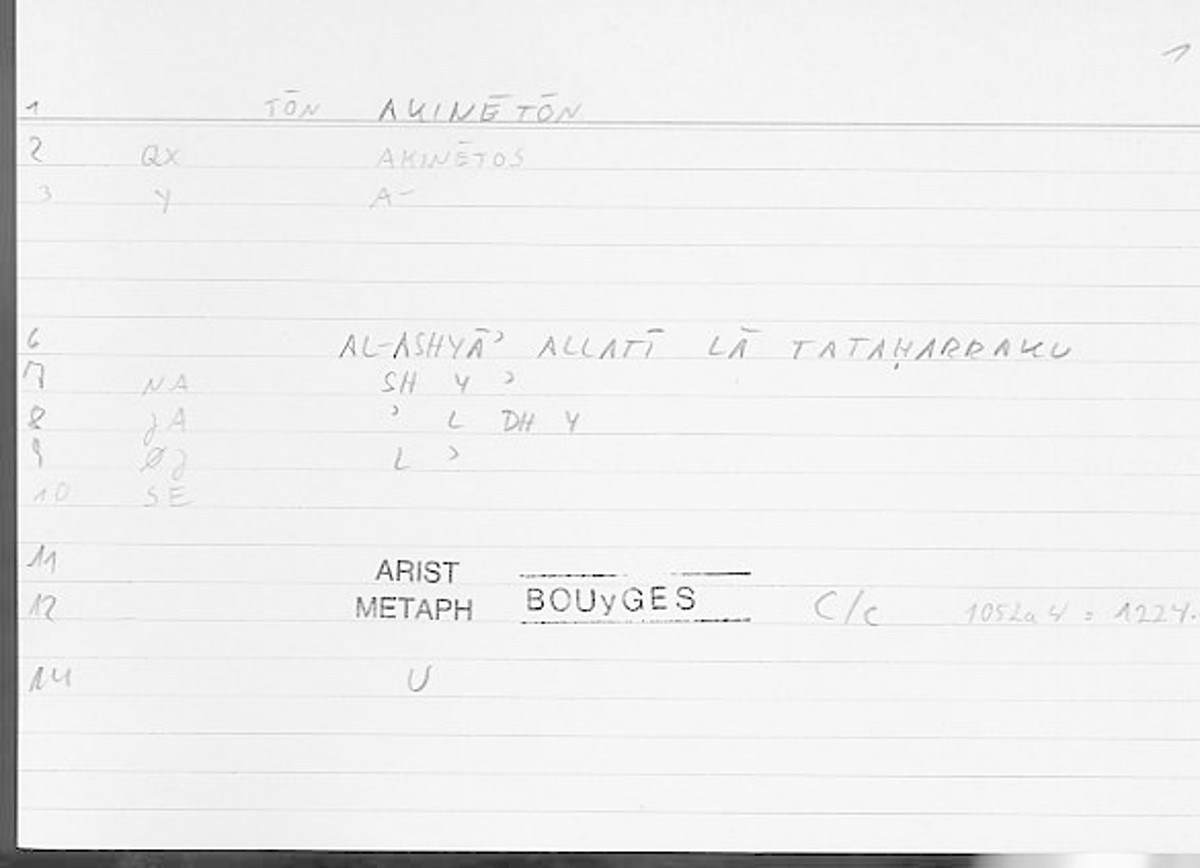 1
1 TŌN AKINĒTŌN
2 QX AKINĒTOS
3 Y A-
6 AL-ASHYĀʾ ALLATĪ LĀ TATAḤARRAKU
7 NA SH Y ʾ
8 JA ʾ L DH Y
9 ØJ L ʾ
10 SE
11 ARIST
12 METAPH BOUyGES C/c 1052a 4 = 1224.
14 U